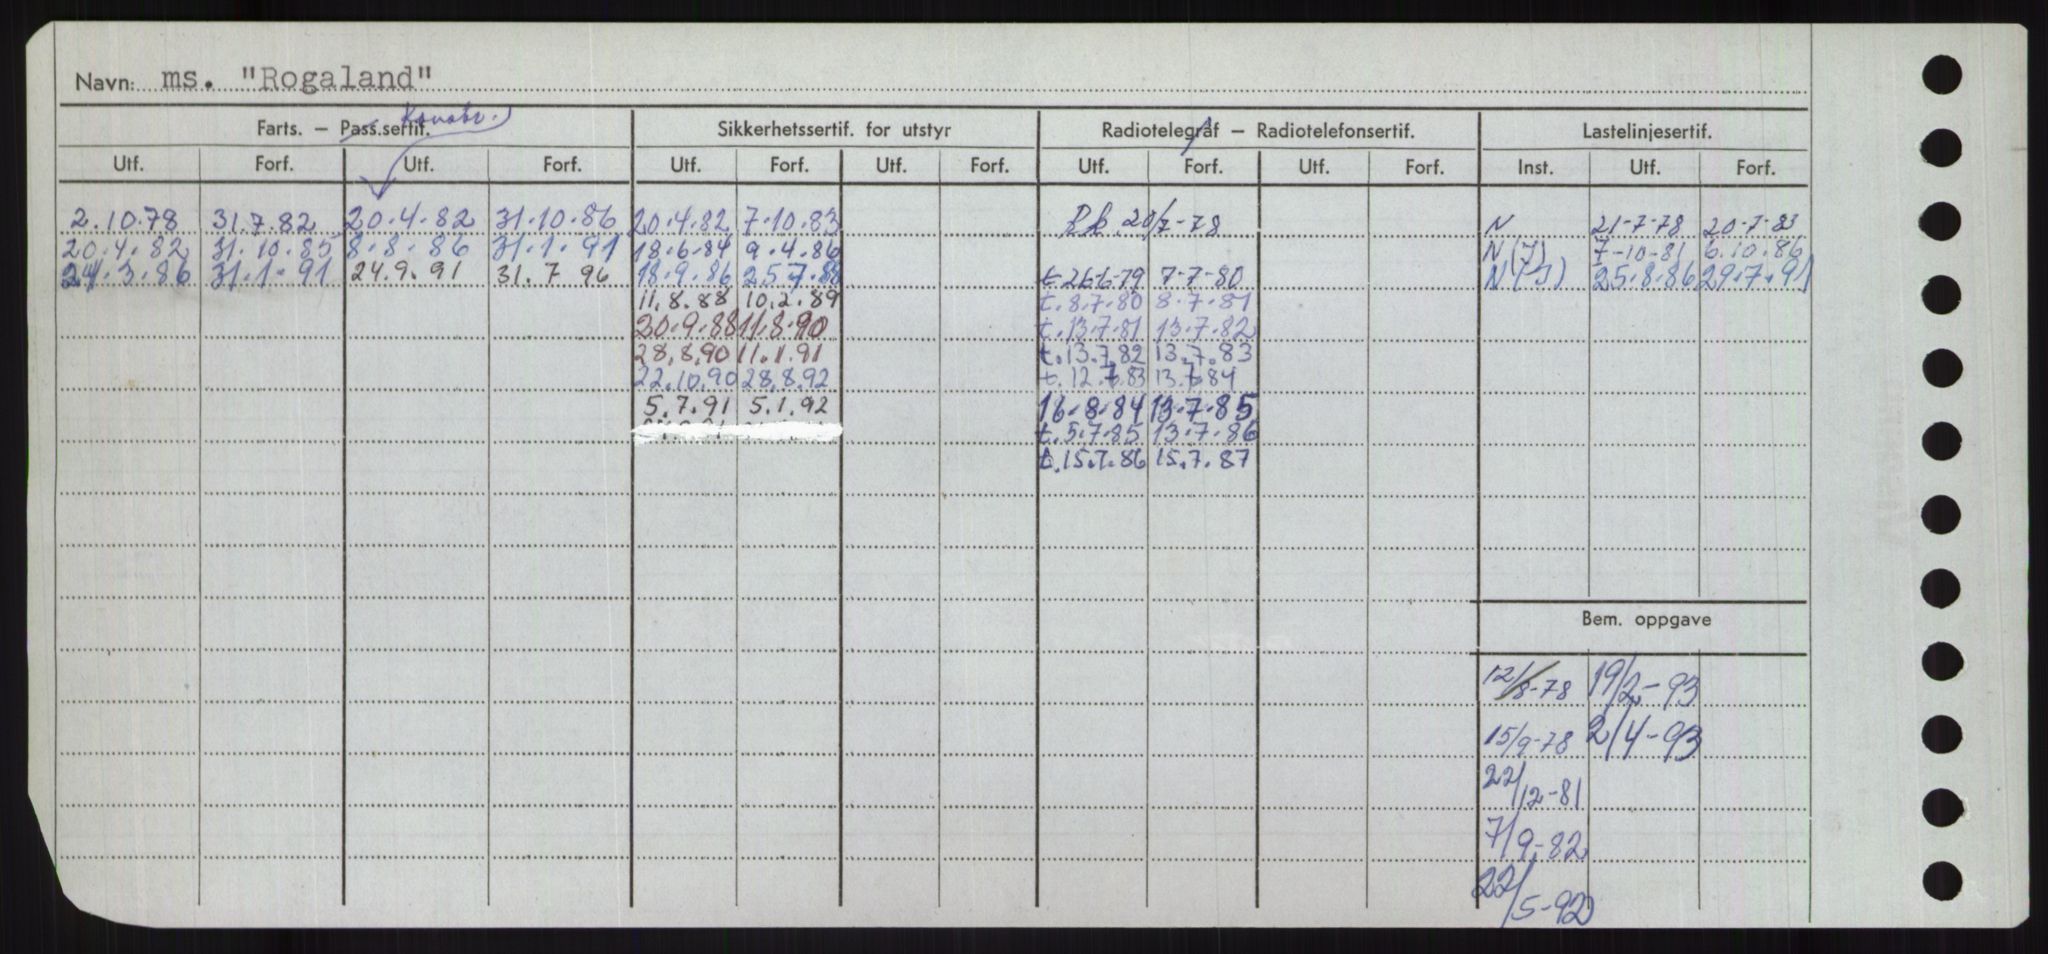 Navn: ms. "Rogaland"
Konstr.
Farts. – Pass.sertif. Sikkerhetssertif. for utstyr Radiotelegraf – Radiotelefonsertif. Lastelinjesertif.
Utf. Forf. Utf. Forf. Utf. Forf. Utf. Forf. Utf. Forf. Utf. Forf. Inst. Utf. Forf.
2.10.78 31.7.82 20.4.82 31.10.86 20.4.82 7.10.83 20/7-78 N 21-7-78 20-7-83
20.4.82 31.10.85 8.8.86 31.1.91 18.6.84 9.4.86 N(J) 7-10-81 6.10.86
24.3.86 31.1.91 24.9.91 31.7 96 18.9.86 25.7.88 t.26.6.79 7-7-80 N(J) 25.8.86 29.7.91
11.8.88 10.2.89 t.8.7.80 8.7.81
20.9.88 11.8.90 t.13.7.81 13.7.82
28.8.90 11.1.91 t.13.7.82 13.7.83
22.10.90 28.8.92 t.12.7.83 13.7.84
5.7.91 5.1.92 16.8.84 13.7.85
t.5.7.85 13.7.86
t.15.7.86 15.7.87
Bem. oppgave
12/8-78 19/2-93
15/9-78 2/4-93
22/12-81
7/9-82
22/5-92